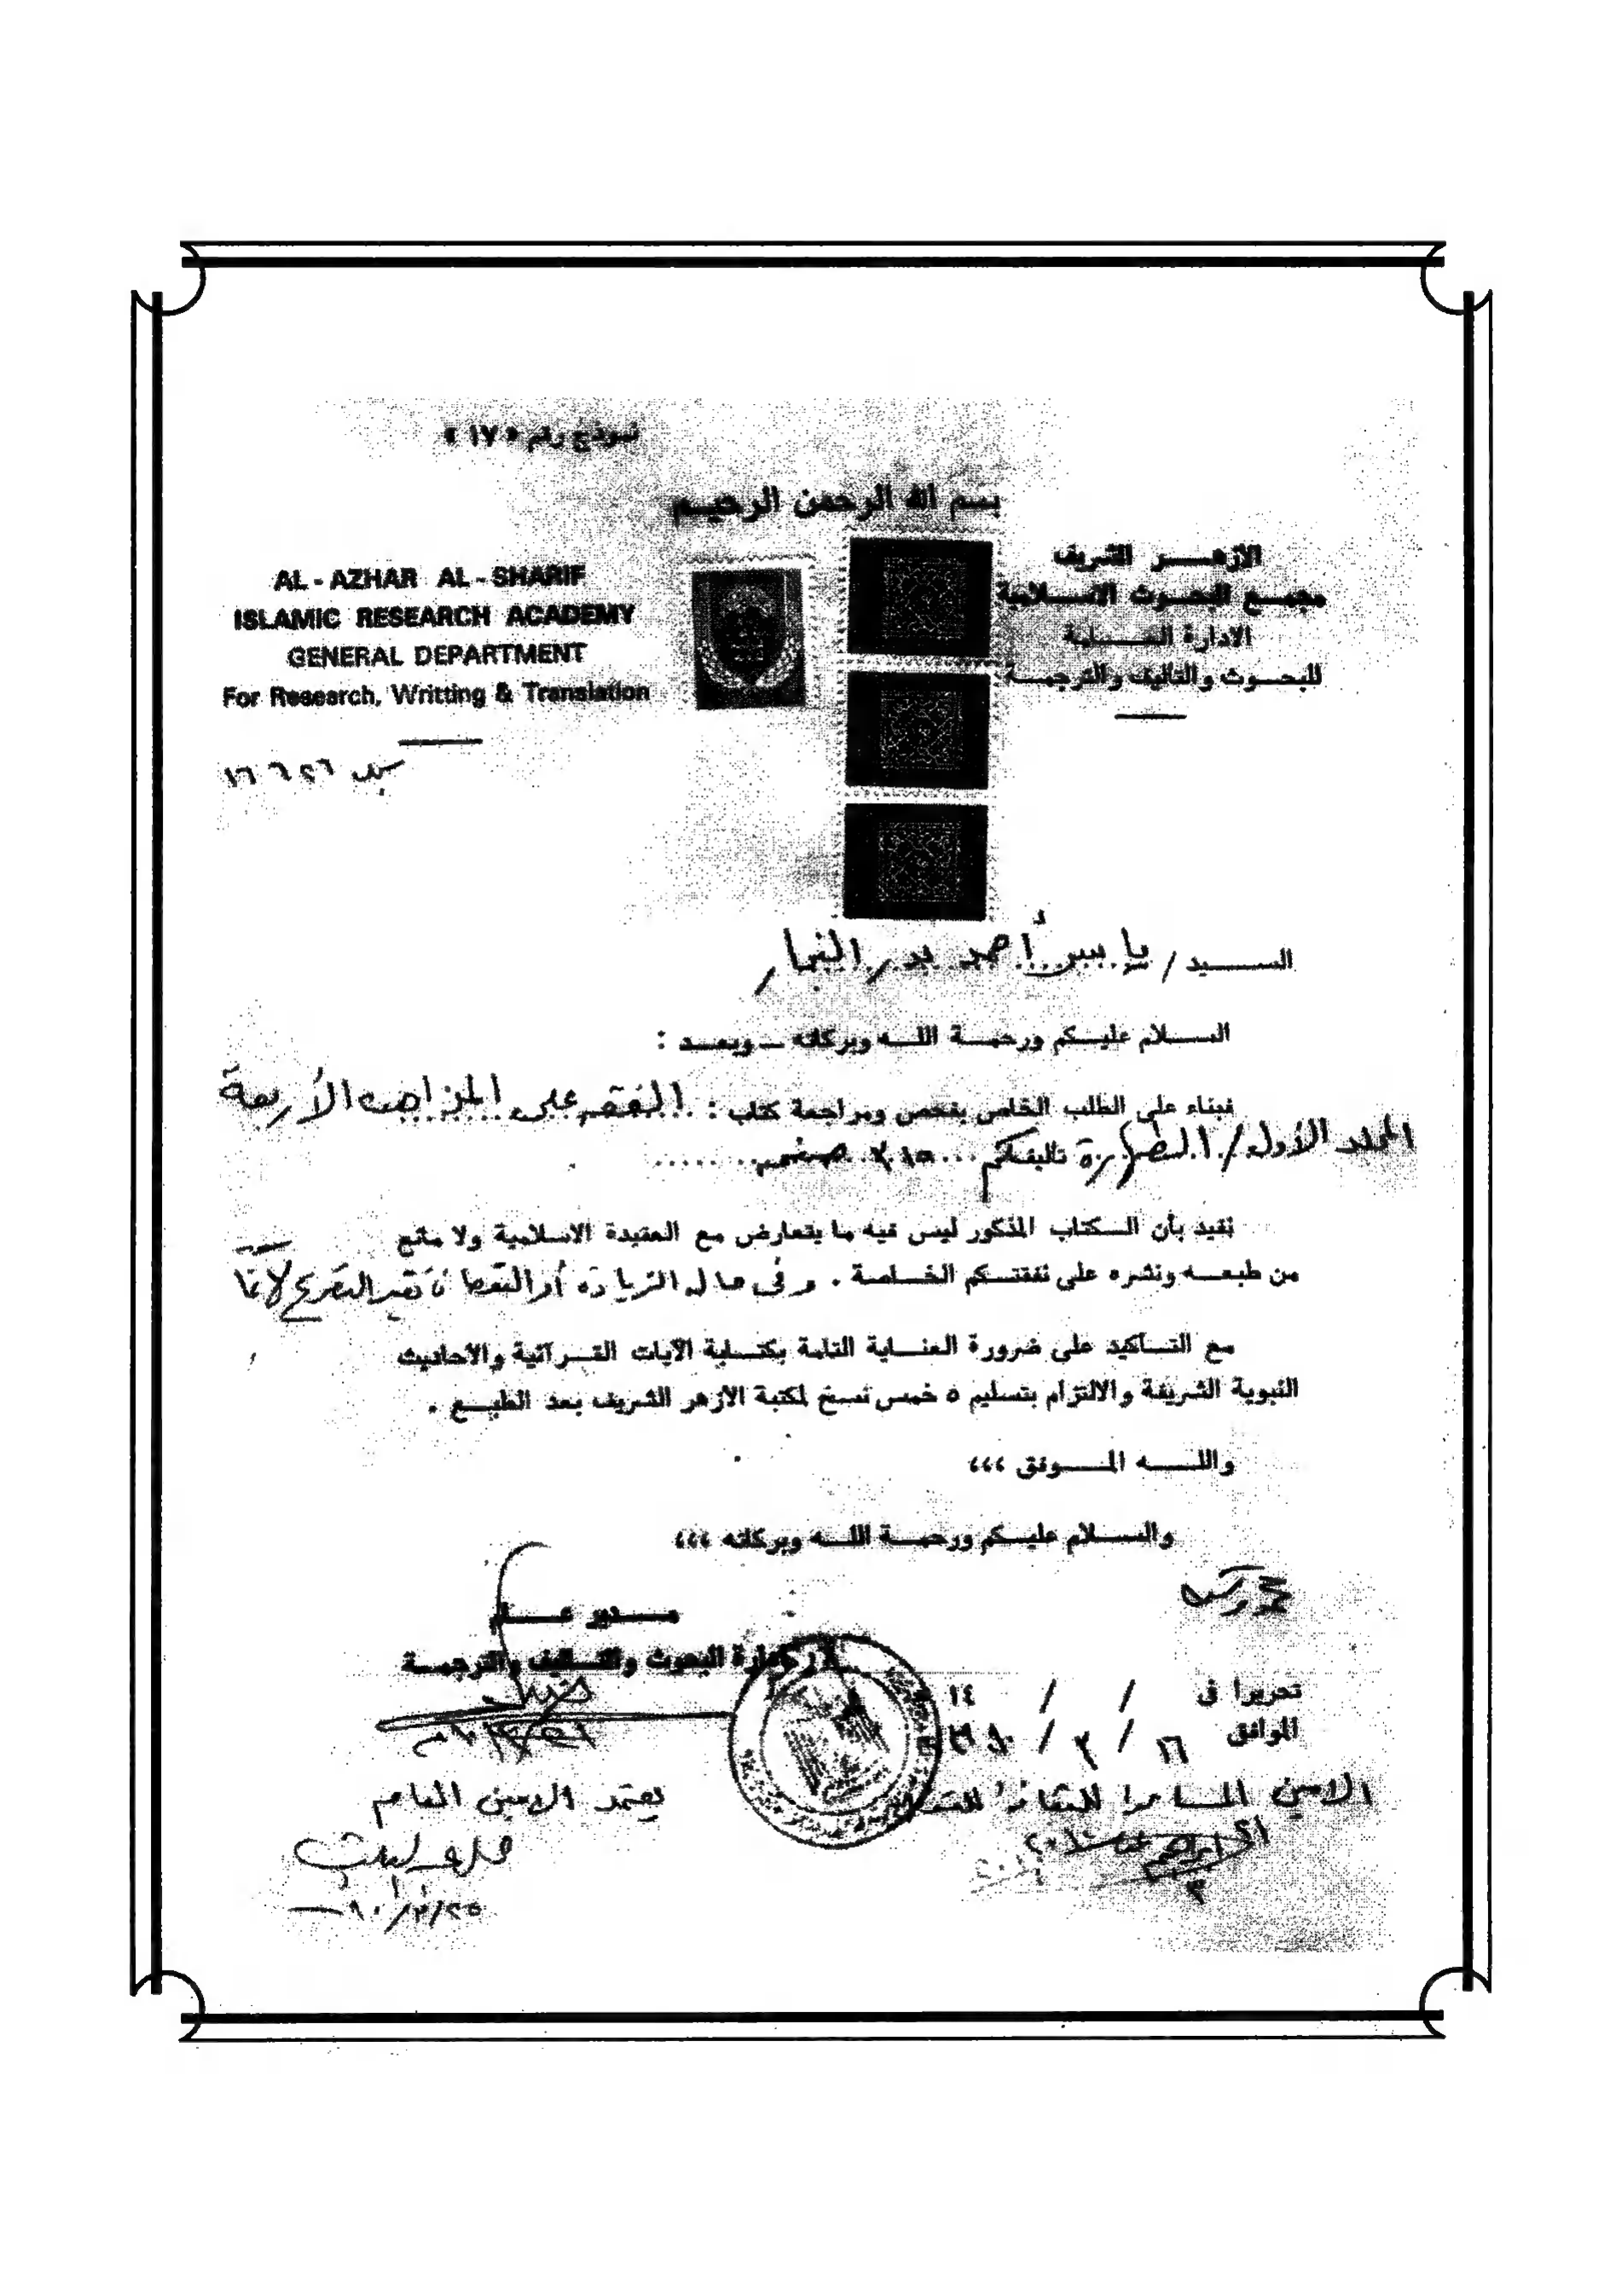 نموذج رقم « ١٧ »
بسم الله الرحمن الرحيم
الازهـــر الشريف
مجمـع البحـوث الاسـلامية
الادارة العـــامة
للبحـوث والتأليف والترجمـة
AL - AZHAR AL - SHARIF
ISLAMIC RESEARCH ACADEMY
GENERAL DEPARTMENT
For Research, Writting & Translation
الســـيد / ياسر أحمد بدر النجار
السـلام عليـكم ورحمـة اللـه وبركاته ــ وبعـد :
فبناء على الطلب الخاص بفحص ومراجعة كتاب : الفقه على المذاهب الأربعة
المجلد الأول / الطهارة تأليفـكم صفحة
نفيد بأن الـكتاب المذكور ليس فيه ما يتعارض مع العقيدة الاسلامية ولا مانع
من طبعـه ونشره على نفقتـكم الخـاصة . وفى حال الزيادة أو النقصان يعتبر التصريح لاغيا
مع التـأكيد على ضرورة العنـاية التامة بكتـابة الآيات القـرآنية والاحاديث
النبوية الشريفة والالتزام بتسليم ٥ خمس نسخ لمكتبة الأزهر الشريف بعد الطبـع .
واللـــه المـــوفق ،،،
والسـلام عليـكم ورحمـة اللـه وبركاته ،،،
مـــدير عـــام
ادارة البحوث والتـأليف والترجمـة
تحريرا فى / / ١٤
الموافق ١٦ / ٣ /
يعتمد الأمين العام